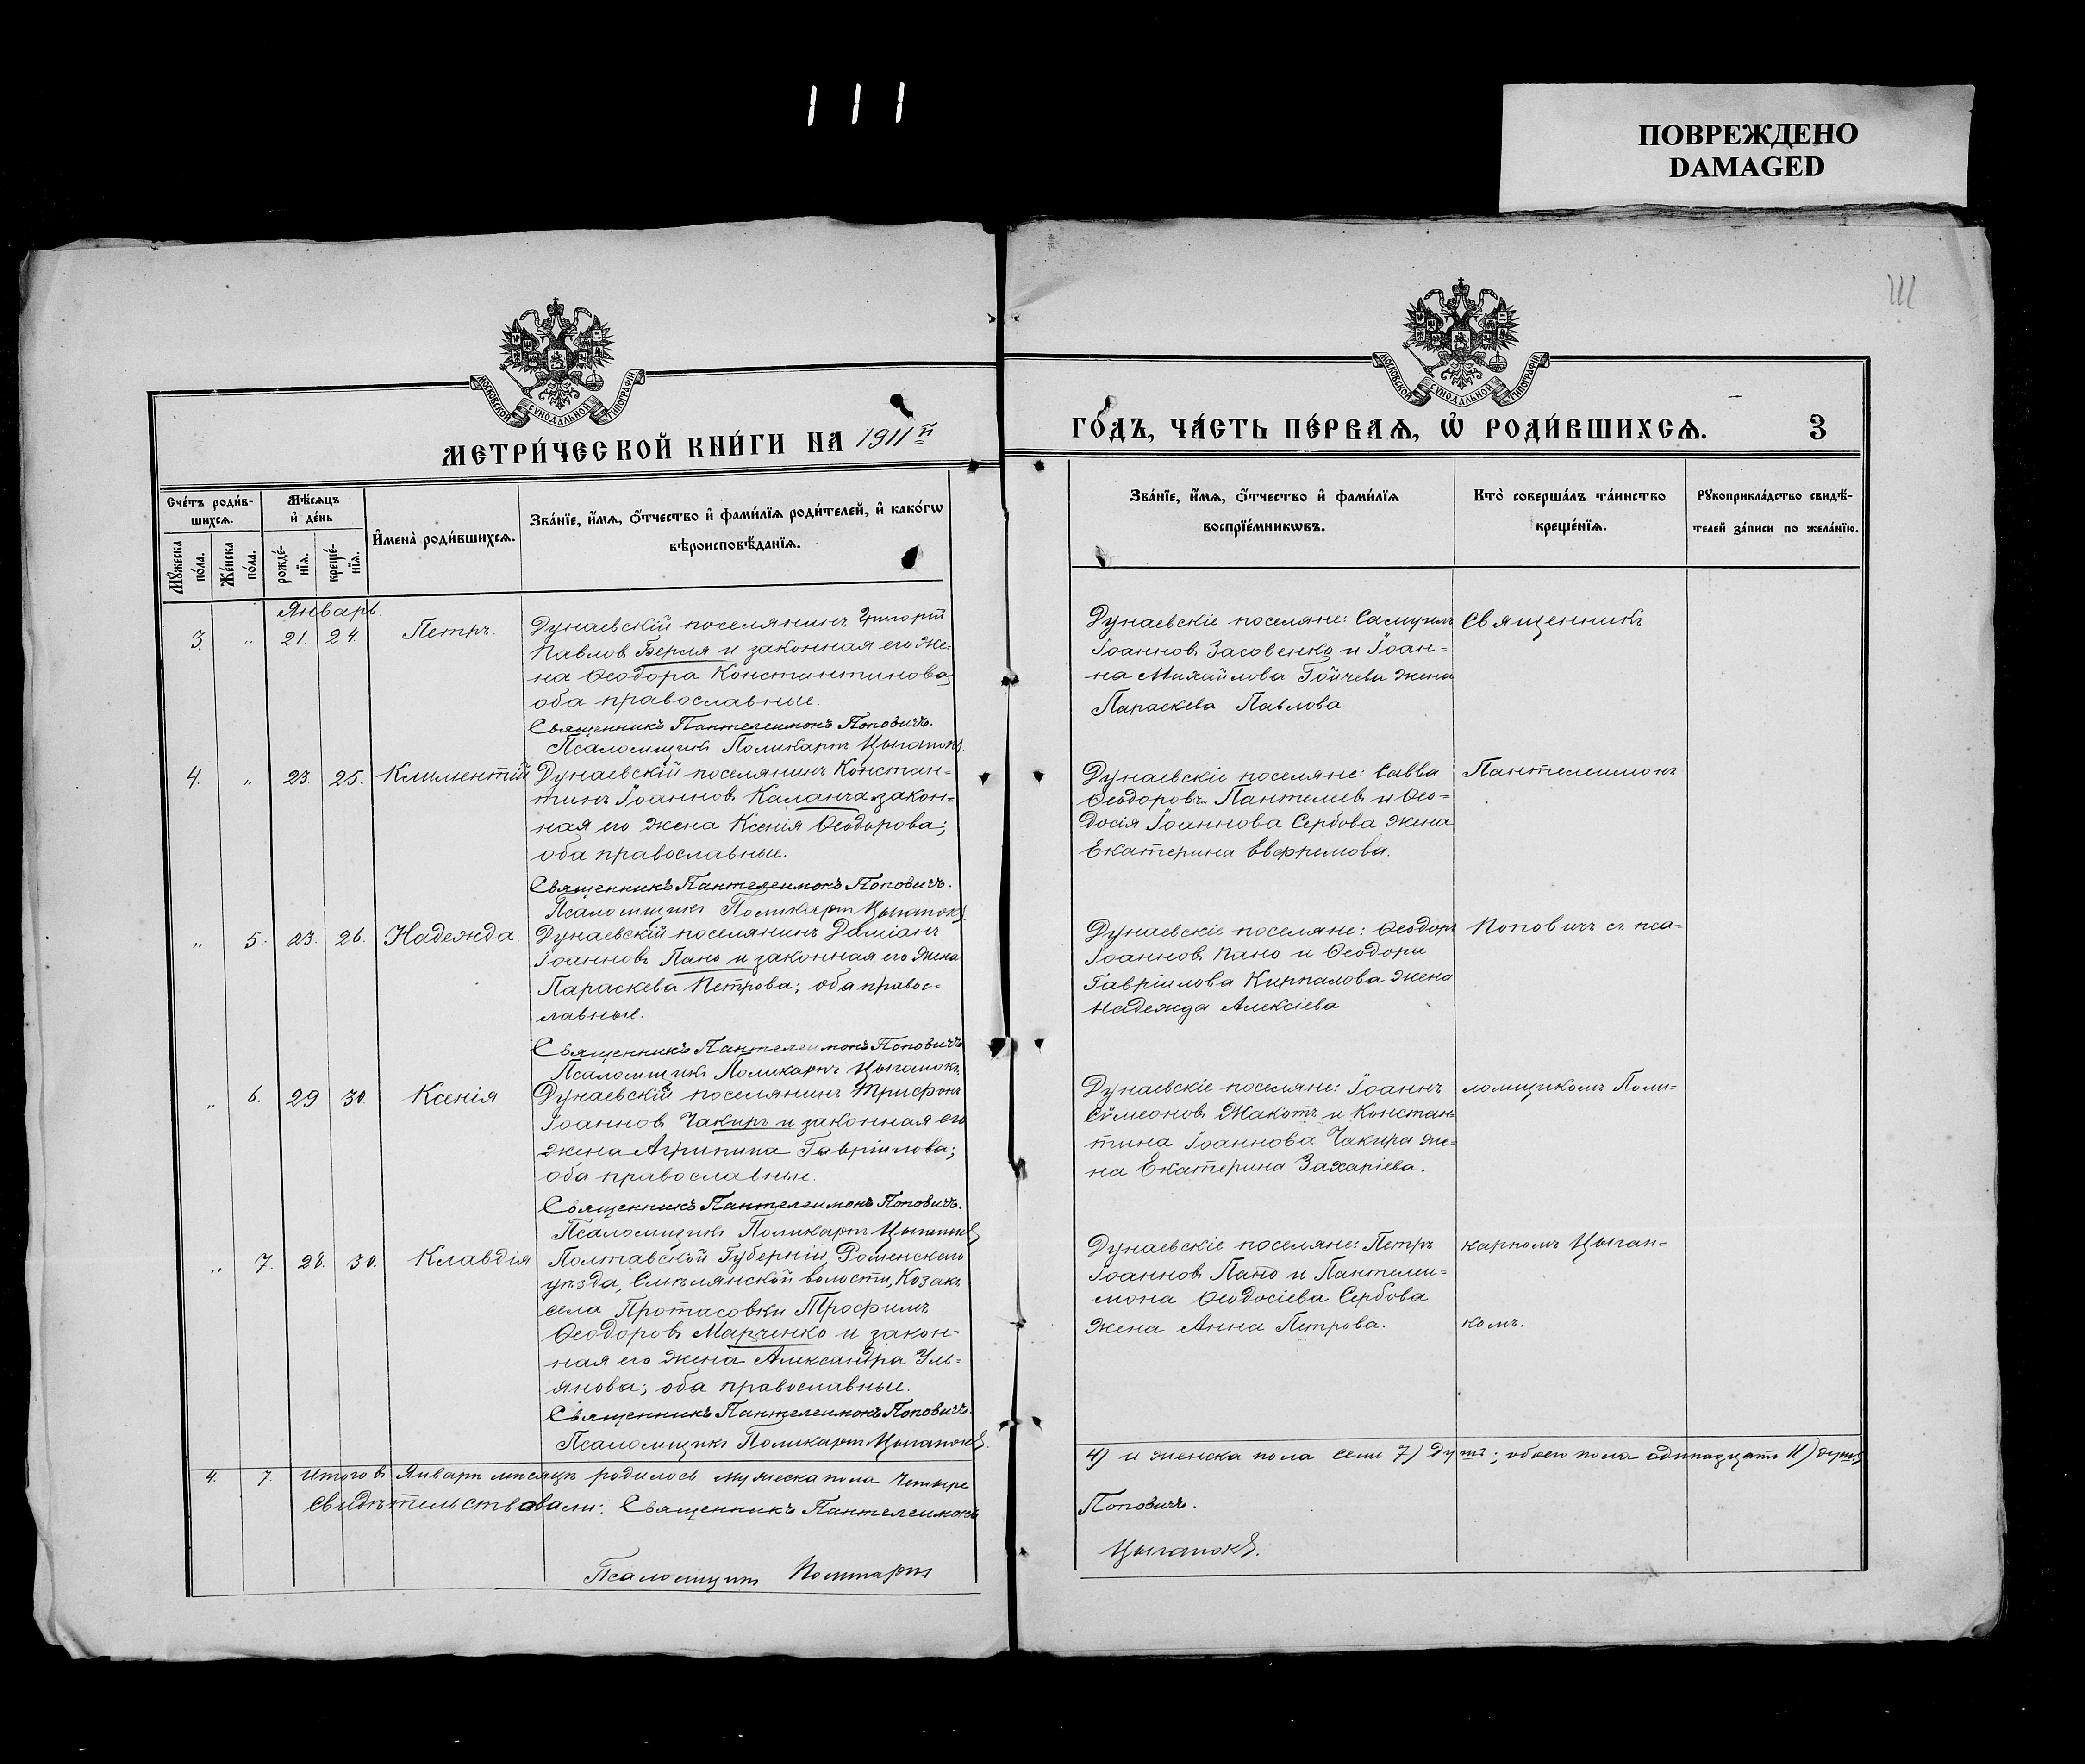 111
ПОВРЕЖДЕНО
DAMAGED
111
МОСКОВСКОЙ СѴНОДАЛЬНОЙ ТИПОГРАФІИ
МОСКОВСКОЙ СѴНОДАЛЬНОЙ ТИПОГРАФІИ
МЕТРИ́ЧЕСКОЙ КНИ́ГИ НА 1911й
ГО́ДЪ, ЧА́СТЬ ПЕ́РВАѦ, Ѡ҆ РОДИ́ВШИХСѦ. 3
Сче́тъ роди́в-
шихсѧ.
Мꙋ́жеска по́ла.
Же́нска по́ла.
Мѣ́сѧцъ
и҆ де́нь
рожде́-
нїѧ.
креще́-
нїѧ.
И҆мена̀ роди́вшихсѧ.
Зва́нїе, и҆́мѧ, ѻ҆́тчество и҆ фами́лїѧ роди́телей, и҆ како́гѡ
вѣроисповѣ́данїѧ.
Зва́нїе, и҆́мѧ, ѻ҆́тчество и҆ фами́лїѧ
воспрїе́мникѡвъ.
Кто̀ соверша́лъ та́инство
креще́нїѧ.
Рꙋкоприкла́дство свидѣ́-
телей за́писи по жела́нїю.
Январь.
3. " 21. 24 Петръ.
Дунаевскій поселянинъ Григорій
Павловъ Берля и законная его же-
на Ѳеодора Константинова,
оба православные.
Священникъ Пантелеимонъ Поповичъ.
Псаломщикъ Поликарпъ Цыганокъ.
Дунаевскіе поселяне: Самуилъ
Іоанновъ Засовенко и Іоан=
на Михайлова Гойчева жена
Параскева Павлова
Священникъ
4. " 23. 25. Климентій
Дунаевскій поселянинъ Констан=
тинъ Іоанновъ Каланча и закон=
ная его жена Ксенія Ѳеодорова;
оба православные.
Священникъ Пантелеимонъ Поповичъ.
Псаломщикъ Поликарпъ Цыганокъ.
Дунаевскіе поселяне: Савва
Ѳеодоровъ Пантелеевъ и Ѳео=
досія Іоаннова Сербова жена
Екатерина Евфремова.
Пантелеимонъ
" 5. 23. 26. Надежда.
Дунаевскій поселянинъ Даміанъ
Іоанновъ Пано и законная его жена
Параскева Петрова; оба правос-
лавные.
Священникъ Пантелеимонъ Поповичъ
Псаломщикъ Поликарпъ Цыганокъ.
Дунаевскіе поселяне: Ѳеодоръ
Іоанновъ Пано и Ѳеодора
Гавріилова Кирпалова жена
Надежда Алексіева
Поповичъ съ пса=
" 6. 29 30 Ксенія
Дунаевскій поселянинъ Трифонъ
Іоанновъ Чакиръ и законная его
жена Агрипина Гавріилова;
оба православные.
Священникъ Пантелеимонъ Поповичъ.
Псаломщикъ Поликарпъ Цыганокъ
Дунаевскіе поселяне: Іоаннъ
Сѵмеоновъ Жакотъ и Констан
тина Іоаннова Чакира же=
на Екатерина Захаріева.
ломщикомъ Поли=
" 7. 28. 30. Клавдія
Полтавской Губерніи, Роменскаго
уѣзда, Смѣлянской волости, Козакъ
села Протасовки Трофимъ
Ѳеодоровъ Марченко и закон-
ная его жена Александра Уль-
янова; оба православные.
Священникъ Пантелеимонъ Поповичъ.
Псаломщикъ Поликарпъ Цыганокъ.
Дунаевскіе поселяне: Петръ
Іоанновъ Пано и Пантелеи=
мона Ѳеодосіева Сербова
жена Анна Петрова.
карпомъ Цыган=
комъ.
4. 7. Итого въ Январѣ мѣсяцѣ родилось мужеска пола Четыре
4) и женска пола семь 7) Душъ; обоего пола одинадцать 11) душъ
Свидѣтельствовали: Священникъ Пантелеимонъ
Поповичъ.
Псаломщикъ Поликарпъ
Цыганокъ.